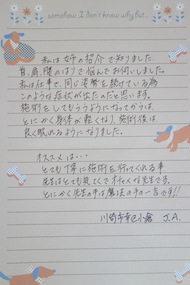 somehow I don't know why but...
私は女子の紹介で知りました。
肩、腰のはりで悩んでお伺いしました。
私は仕事で、同じ姿勢を続けている為
このような症状が出たのだと思います。
施術をしてもらうようになってからは、
とにかく身体が軽くなり施術後は
良く眠れるようになりました。
オススメは…
とても丁寧に施術を行ってくれる事
先生はとても気さくで 先生です。
とにかく先生の手は魔法の手の一言です!!
川崎市幸区小倉 J.A.